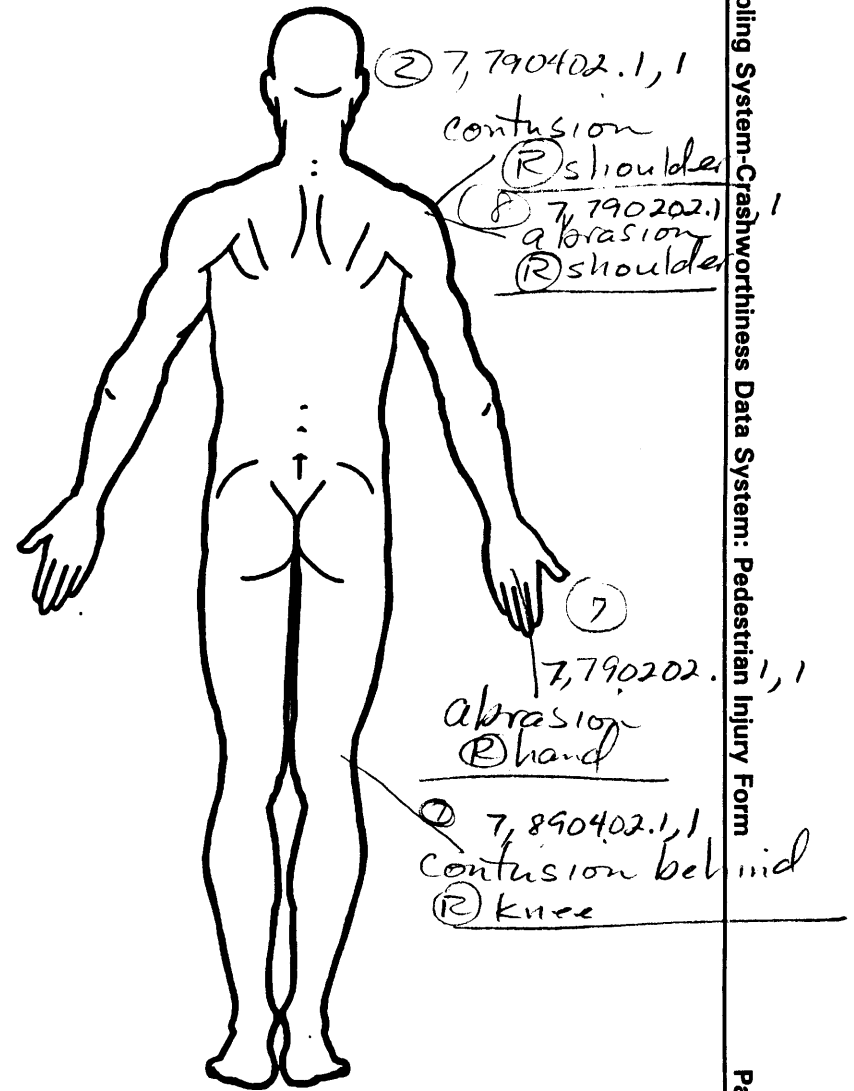 ② 7, 790402.1, 1
contusion
Ⓡ shoulder
⑧ 7, 790202.1, 1
abrasion
Ⓡ shoulder
⑦
7, 790202.1, 1
abrasion
Ⓡ hand
7, 890402.1, 1
contusion behind
Ⓡ knee
pling System-Crashworthiness Data System: Pedestrian Injury Form
Pa